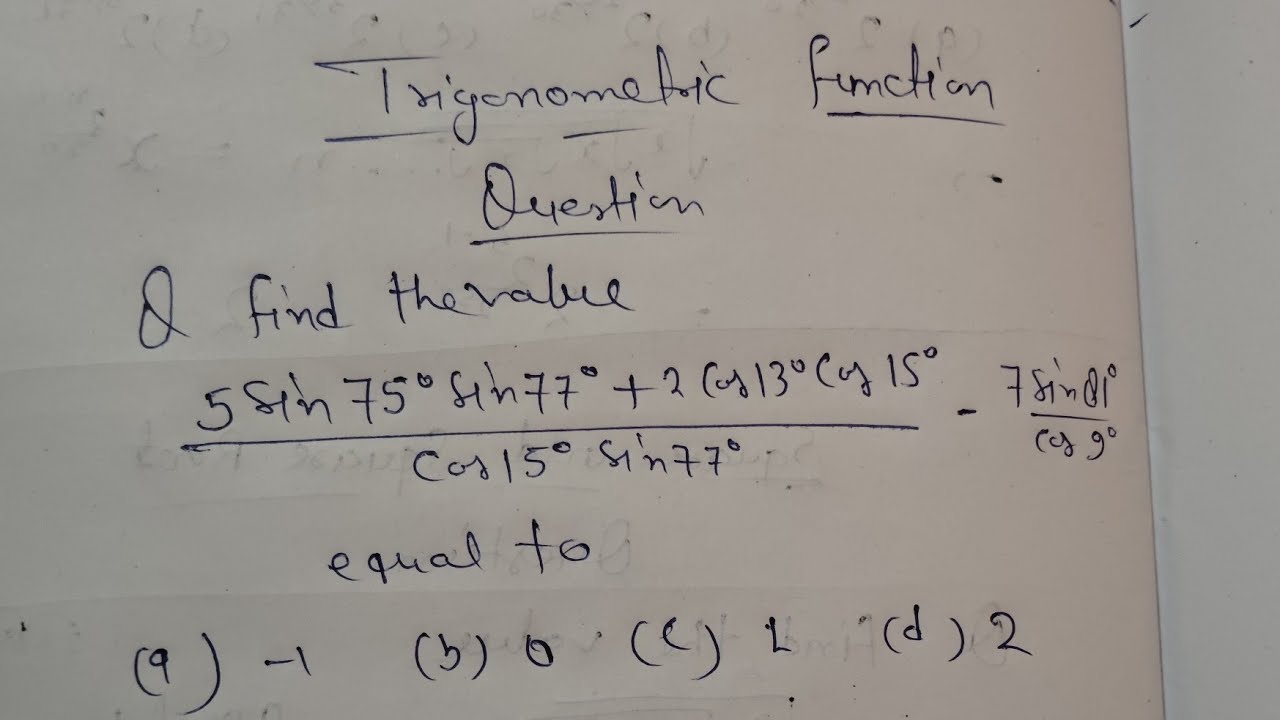 Trigonometric function
Question
Q find the value
5 Sin 75° Sin 77° + 2 Cos 13° Cos 15° - 7 Sin 81°
Cos 15° Sin 77° Cos 9°
equal to
(a) -1 (b) 0 (c) 1 (d) 2